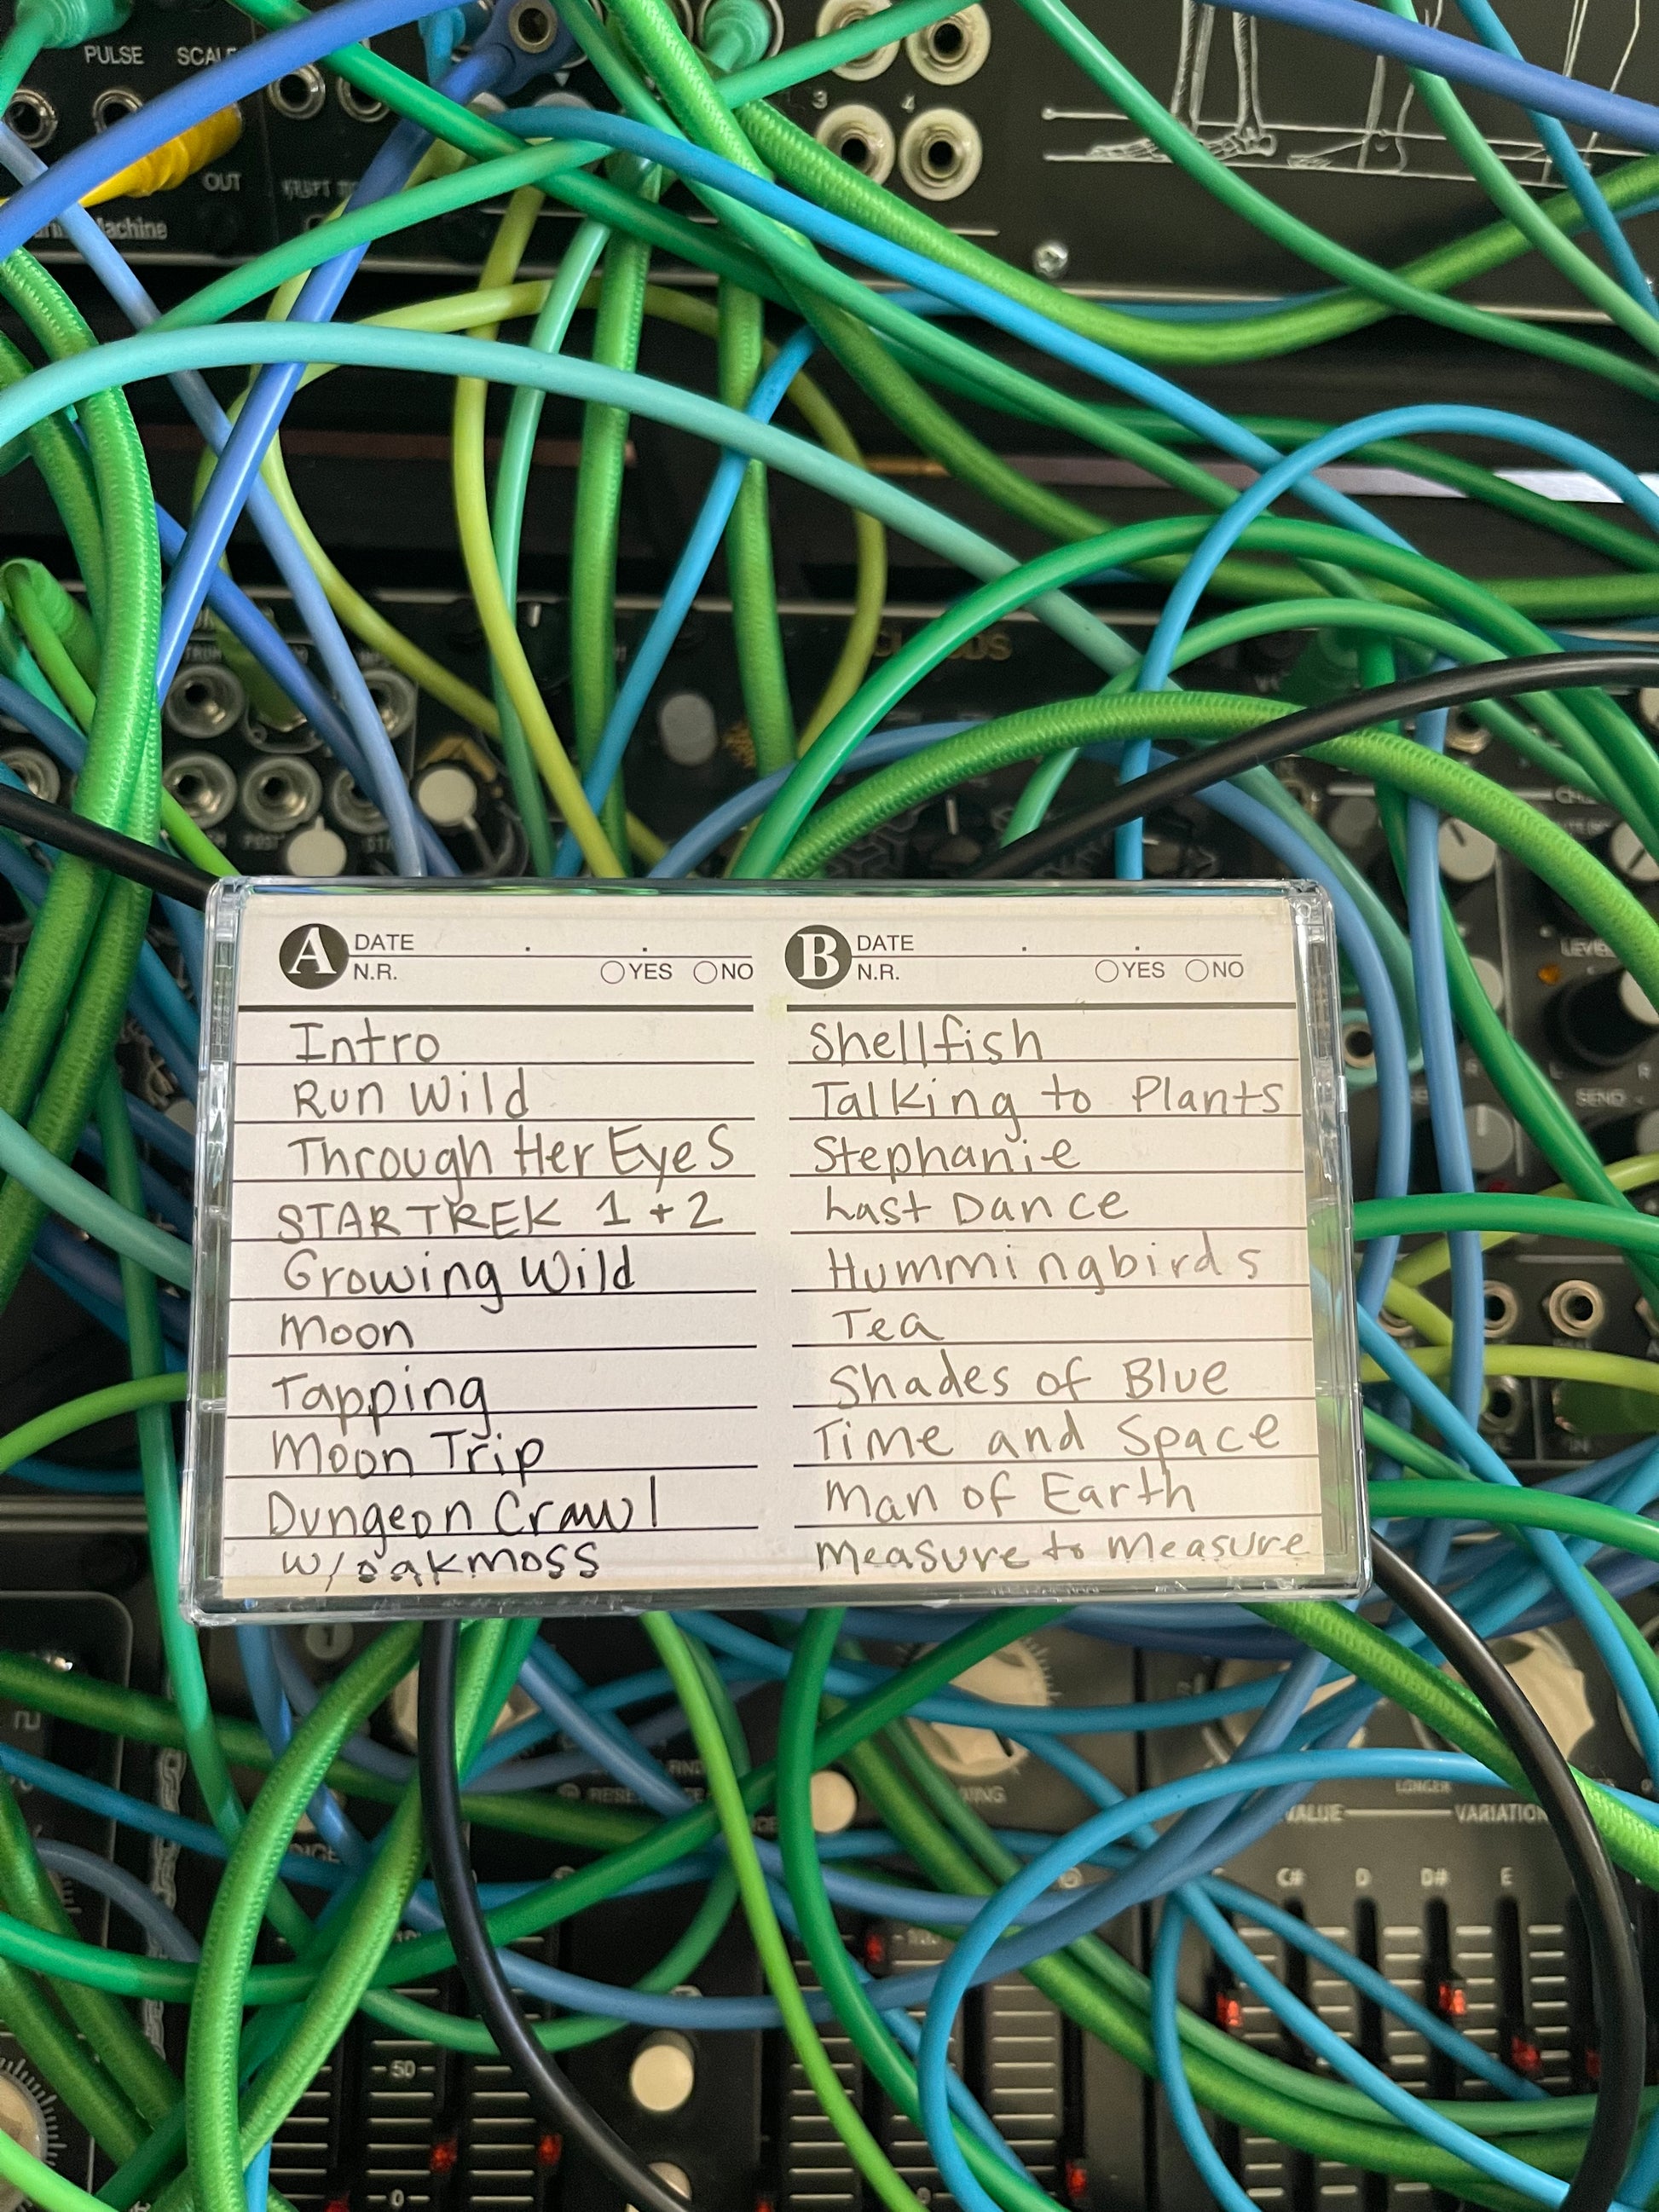 PULSE
OUT
Machine
3 4
CLOUDS
A DATE . .
N.R. YES NO
Intro
Run Wild
Through Her Eyes
STAR TREK 1 + 2
Growing Wild
Moon
Tapping
Moon Trip
Dungeon Crawl
w/oakmoss
B DATE . .
N.R. YES NO
Shellfish
Talking to Plants
Stephanie
Last Dance
Hummingbirds
Tea
Shades of Blue
Time and Space
Man of Earth
Measure to Measure
LEVEL
SEND
IN
LONGER
VALUE VARIATION
C# D D# E
50
0